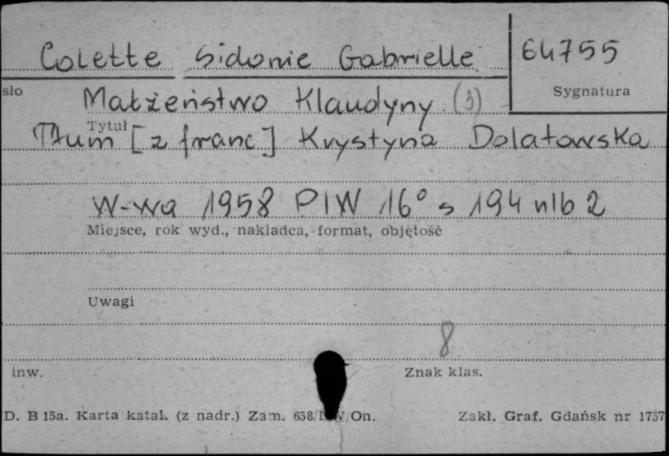 Colette Sidonie Gabrielle 64755
sło Sygnatura
Małżeństwo Klaudyny (3)
Tytuł
Tłum [z franc] Krystyna Dolatowska
W-wa 1958 PIW 16° s 194 nlb 2
Miejsce, rok wyd., nakładca, format, objętość
Uwagi
8
inw. Znak klas.
D. B 15a. Karta katal. (z nadr.) Zam. On. Zakł. Graf. Gdańsk nr 1757